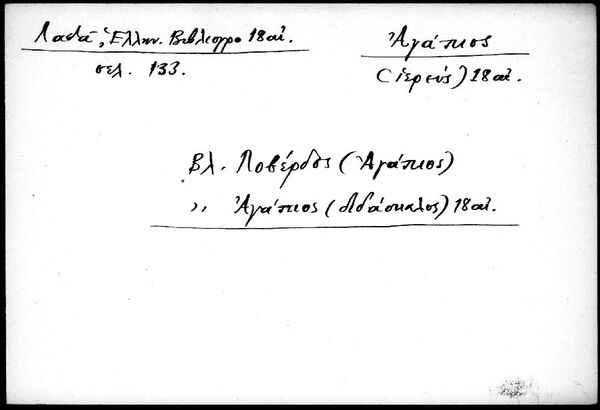 Λαδᾶ, Ἑλλην. Βιβλιογρ. 18 αἰ.
σελ. 133.
Ἀγάπιος
(ἱερεύς) 18 αἰ.
Βλ. Λοβέρδος (Ἀγάπιος)
〃 Ἀγάπιος (διδάσκαλος) 18 αἰ.